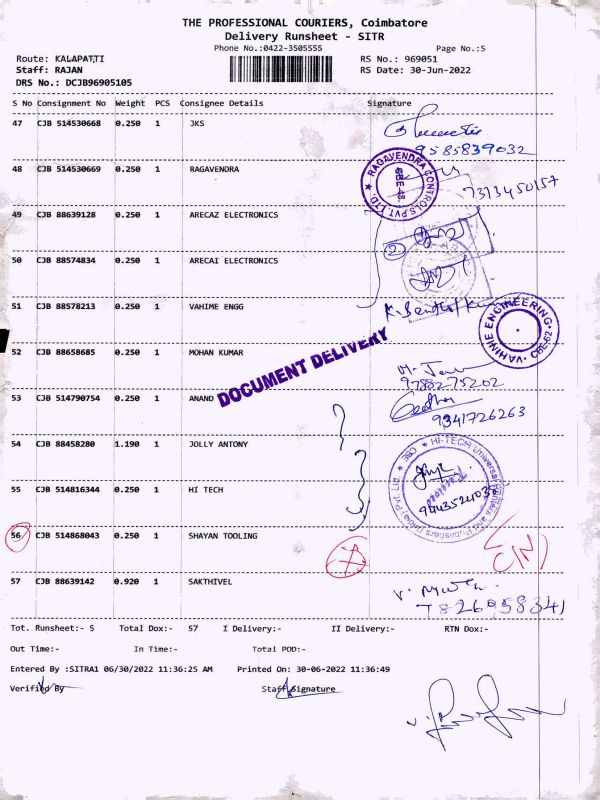 THE PROFESSIONAL COURIERS, Coimbatore
Delivery Runsheet - SITR
Phone No.:0422-3505555
Page No.:5
Route: KALAPATTI
RS No.: 969051
Staff: RAJAN
RS Date: 30-Jun-2022
DRS No.: DCJB96905105
S No Consignment No Weight PCS Consignee Details Signature
47 CJB 514530668 0.250 1 JKS
9585839032
48 CJB 514530669 0.250 1 RAGAVENDRA
RAGAVENDRA CONTROLS PVT. LTD. ★ CBE-48
7373450157
49 CJB 88639128 0.250 1 ARECAZ ELECTRONICS
2
50 CJB 88574834 0.250 1 ARECAI ELECTRONICS
51 CJB 88578213 0.250 1 VAHIME ENGG
VAHINIE ENGINEERING • CBE-62 •
52 CJB 88658685 0.250 1 MOHAN KUMAR
DOCUMENT DELIVERY
9788275202
53 CJB 514790754 0.250 1 ANAND
9341726263
54 CJB 88458280 1.190 1 JOLLY ANTONY
HI-TECH Universal Printers and Publishers (India) Pvt. Ltd. ★ CBE ★
Received
55 CJB 514816344 0.250 1 HI TECH
56 CJB 514868043 0.250 1 SHAYAN TOOLING
57 CJB 88639142 0.920 1 SAKTHIVEL
7826958341
Tot. Runsheet:- 5 Total Dox:- 57 I Delivery:- II Delivery:- RTN Dox:-
Out Time:- In Time:- Total POD:-
Entered By :SITRA1 06/30/2022 11:36:25 AM Printed On: 30-06-2022 11:36:49
Verified By Staff Signature